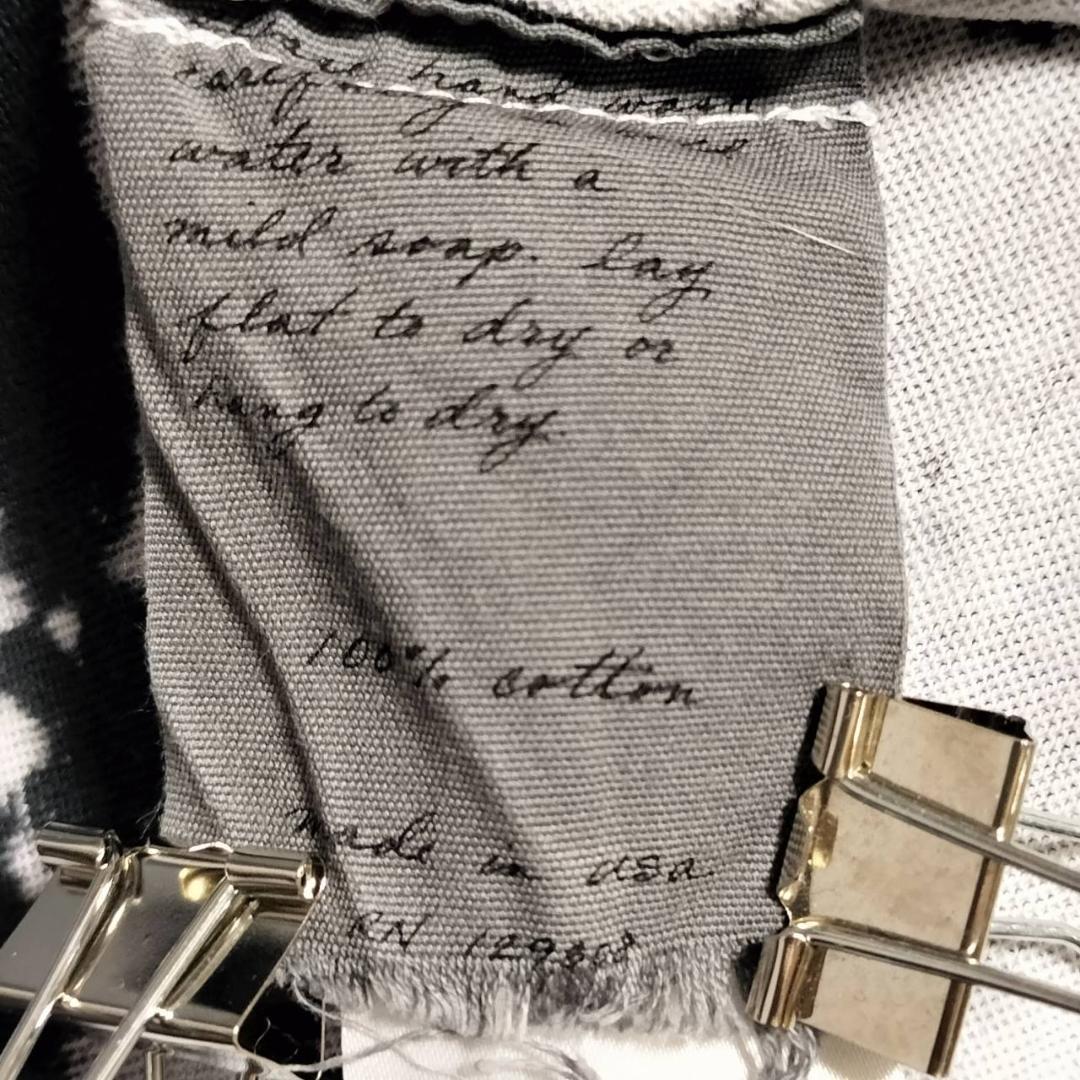 hand wash
water with a
mild soap. lay
flat to dry or
hang to dry.
100% cotton
made in usa
RN